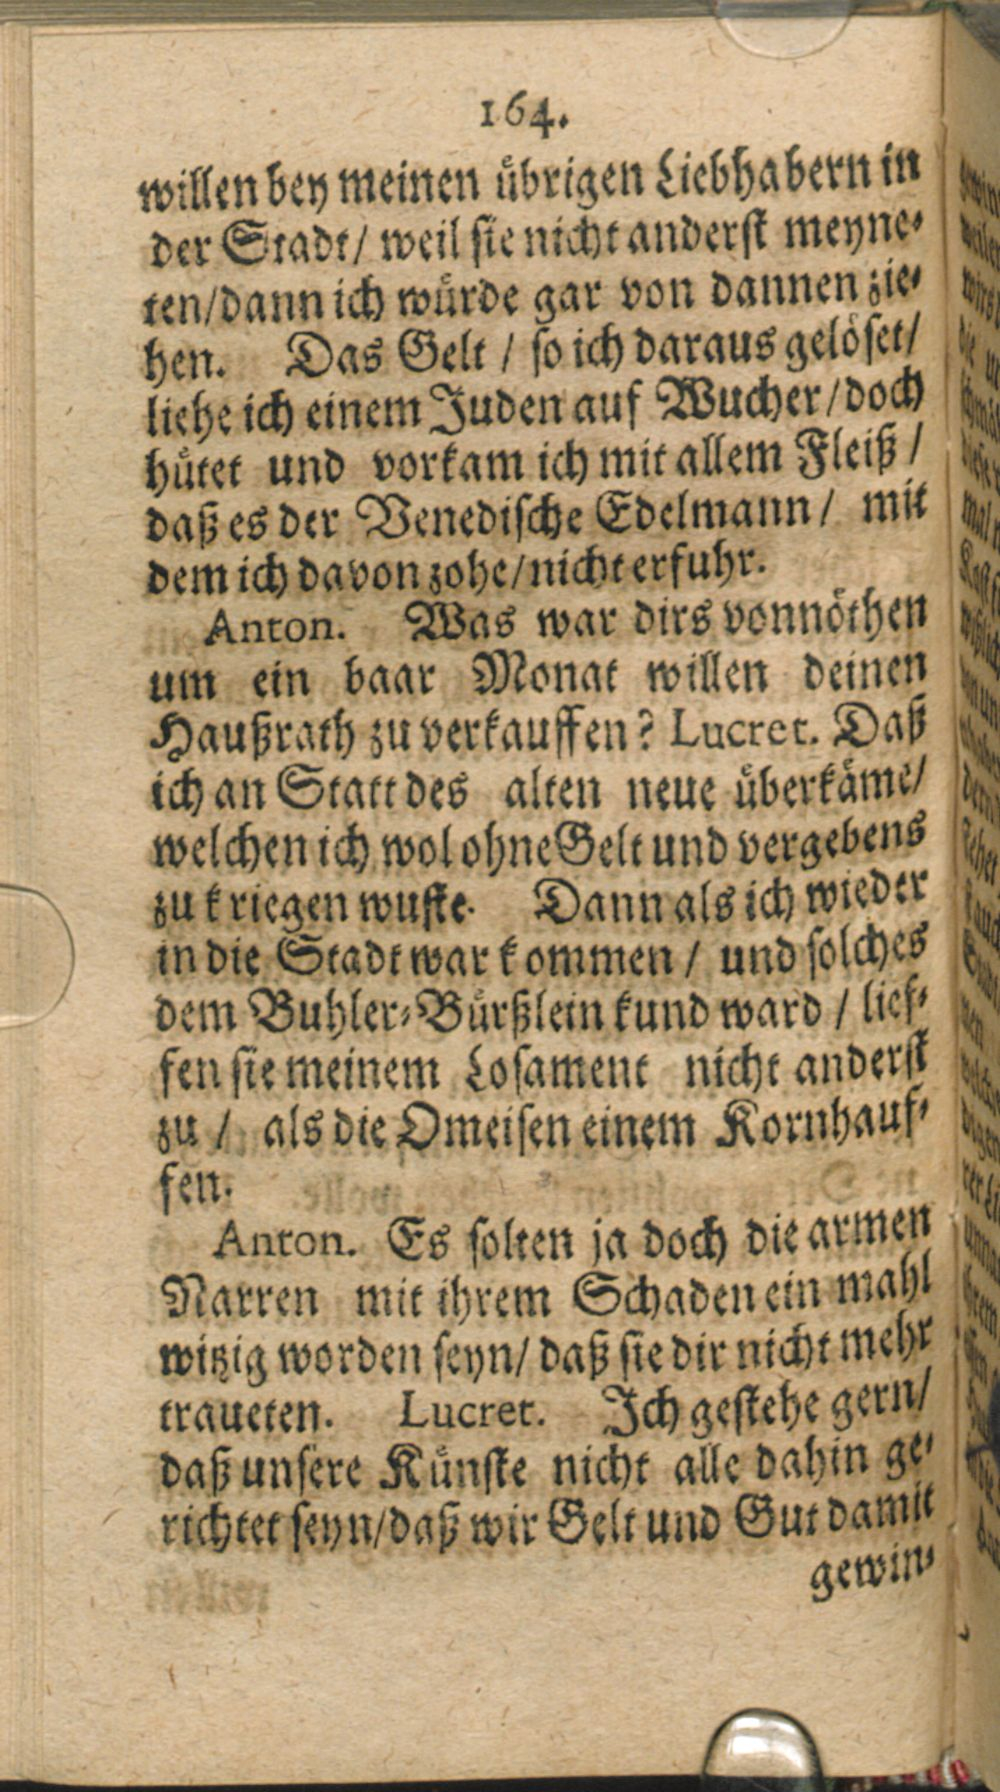 164.
willen bey meinen übrigen Liebhabern in
der Stadt/ weil sie nicht anderst meyne-
ten/dann ich würde gar von dannen zie-
hen. Das Gelt / so ich daraus gelöset/
liehe ich einem Juden auf Wucher/doch
hütet und vorkam ich mit allem Fleiß /
daß es der Venedische Edelmann/ mit
dem ich davon zohe/nicht erfuhr.
Anton. Was war dirs vonnöthen
um ein baar Monat willen deinen
Haußrath zu verkauffen? Lucret. Daß
ich an Statt des alten neue überkäme/
welchen ich wol ohne Gelt und vergebens
zu kriegen wuste. Dann als ich wieder
in die Stadt war kommen / und solches
dem Buhler-Bürßlein kund ward / lief-
fen sie meinem Losament nicht anderst
zu / als die Omeisen einem Kornhauf-
fen.
Anton. Es solten ja doch die armen
Narren mit ihrem Schaden ein mahl
witzig worden seyn/ daß sie dir nicht mehr
traueten. Lucret. Ich gestehe gern/
daß unsere Künste nicht alle dahin ge-
richtet seyn/daß wir Gelt und Gut damit
gewin-